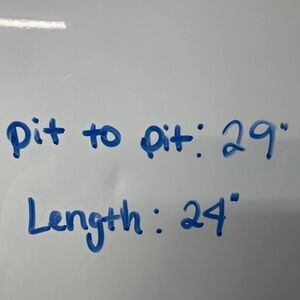 pit to pit: 29"
Length: 24"